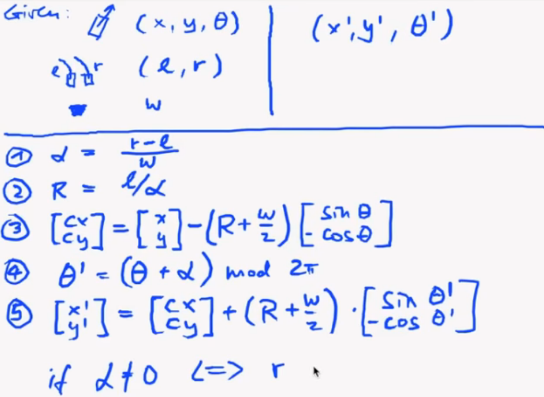 Given: (x, y, θ) (x', y', θ')
l r (l, r)
w
① α = r-l/w
② R = l/α
③ [cx cy] = [x y] - (R + w/2) [sin θ -cos θ]
④ θ' = (θ + α) mod 2π
⑤ [x' y'] = [cx cy] + (R + w/2) · [sin θ' -cos θ']
if α ≠ 0 <=> r